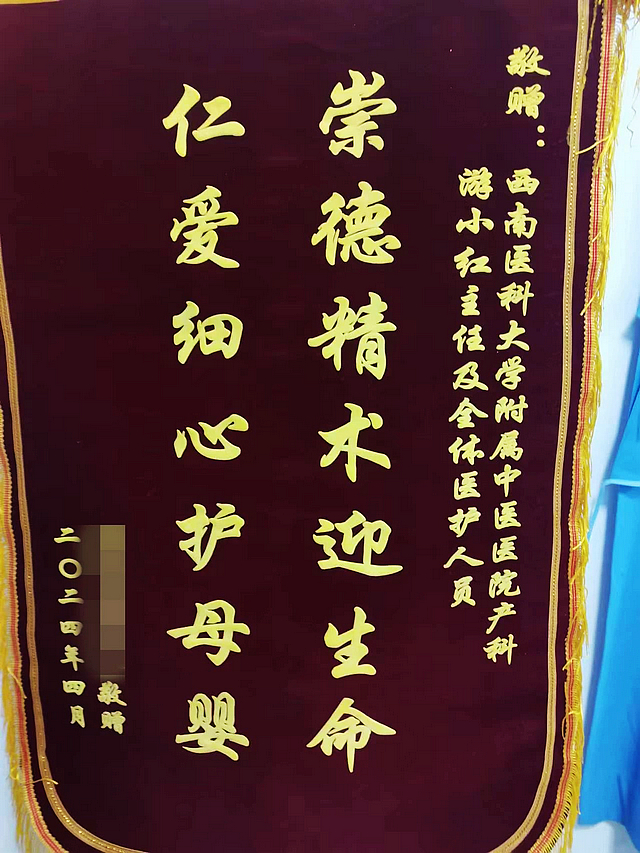 敬赠：
西南医科大学附属中医医院产科
游小红主任及全体医护人员
崇德精术迎生命
仁爱细心护母婴
敬赠
二〇二四年四月